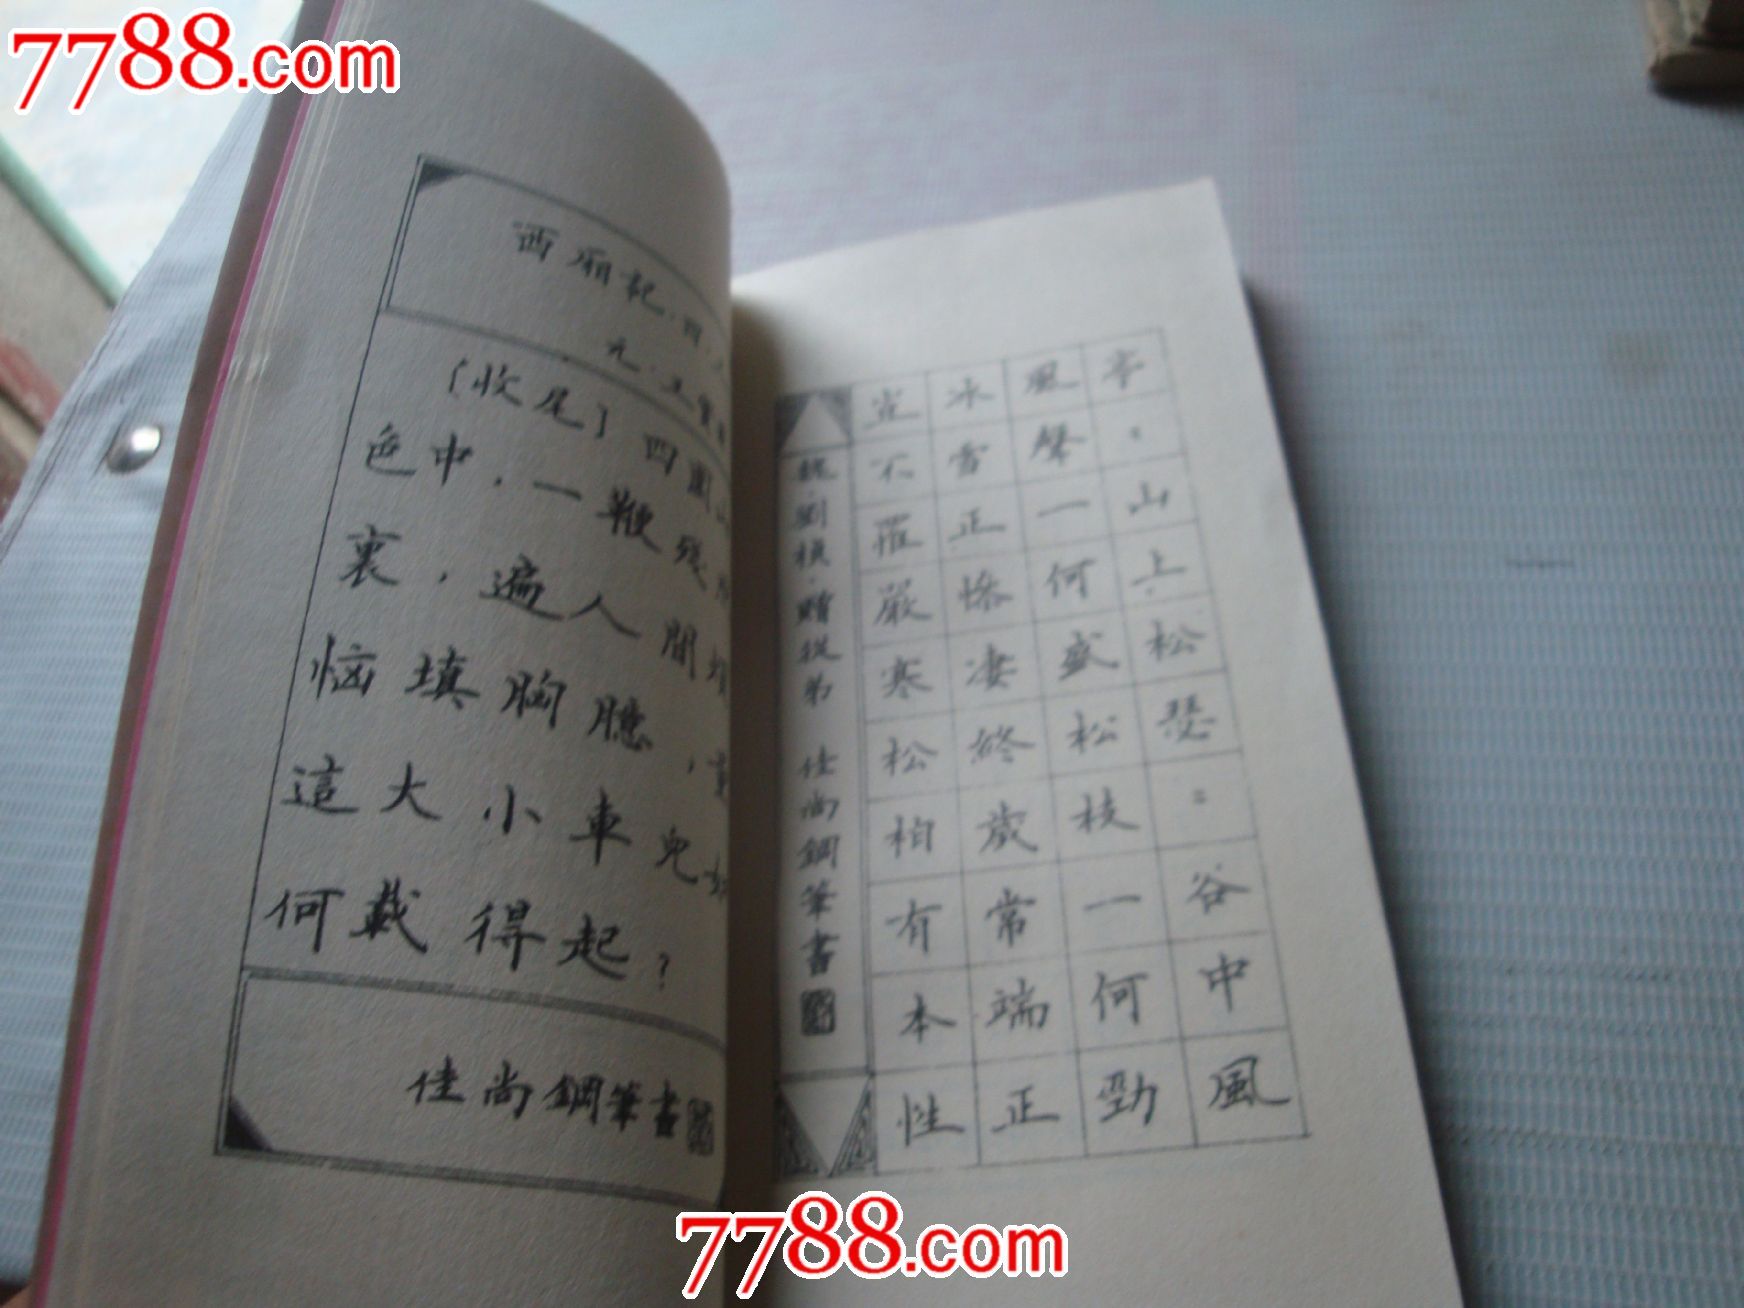 7788.com
西厢記·四·
元·王實
〔收尾〕四圍山
色中，一鞭残
裏，遍人間煩
恼填胸臆，量
這大小車兒如
何載得起？
佳尚鋼筆書
亭〻山上松瑟〻谷中風
風聲一何盛松枝一何勁
冰雪正惨凄終歲常端正
岂不罹嚴寒松柏有本性
魏·劉楨·贈從弟 佳尚鋼筆書
7788.com